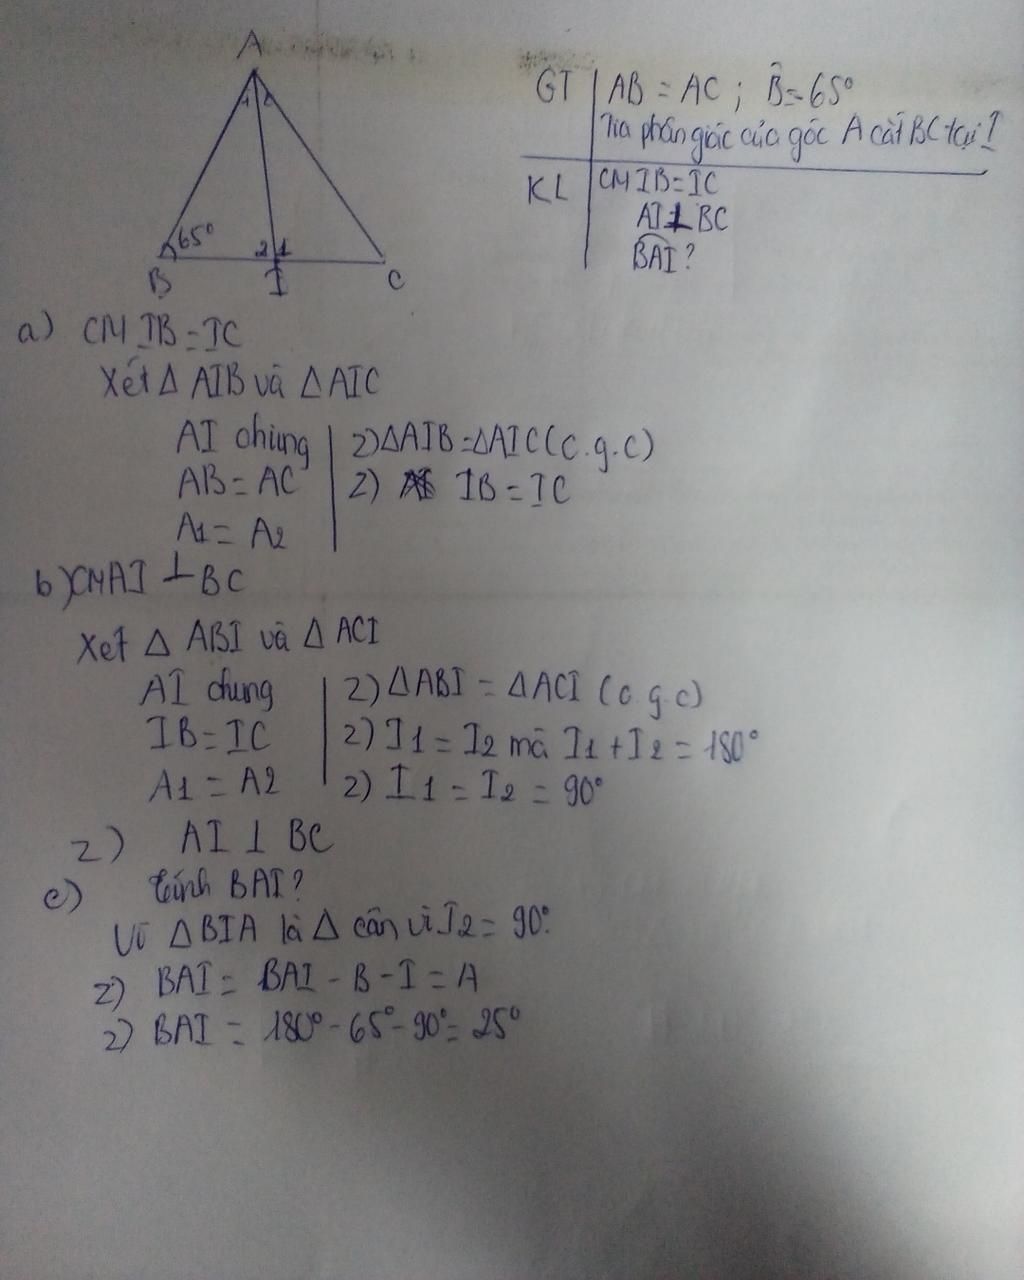 A
1 2
65°
2 1
B I C
GT AB = AC ; B̂ = 65°
Tia phân giác của góc A cắt BC tại I
KL CM IB = IC
AI ⊥ BC
BAI ?
a) CM IB = IC
Xét Δ AIB và Δ AIC
AI chung 2) ΔAIB = ΔAIC (c.g.c)
AB = AC 2) IB = IC
A1 = A2
b) CM AI ⊥ BC
Xét Δ ABI và Δ ACI
AI chung 2) ΔABI = ΔACI (c.g.c)
IB = IC 2) I1 = I2 mà I1 + I2 = 180°
A1 = A2 2) I1 = I2 = 90°
2) AI ⊥ BC
c) tính BAI?
Vì ΔBIA là Δ cân vì I2 = 90°.
2) BAI = BAI - B - I = A
2) BAI = 180° - 65° - 90° = 25°